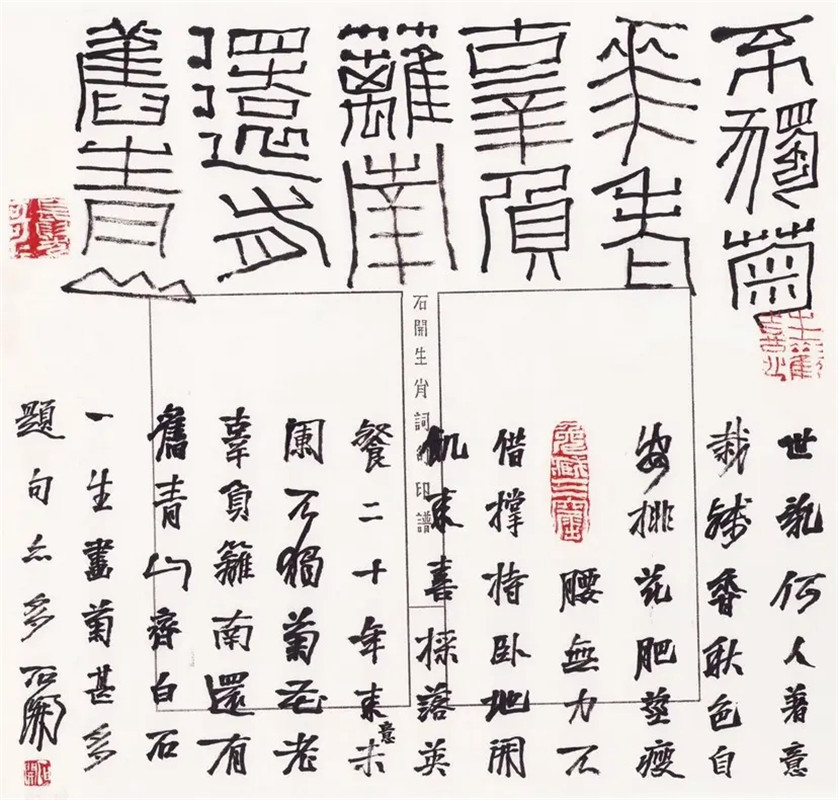 不獨菊
花老
辜負
籬南
還有
舊青山
石開生肖詞印譜
世亂何人著意
栽殘香秋色自
安排花肥莖瘦
腰無力不
借撐持卧地開
飢來喜採落英
餐二十年來意未
闌不獨菊花老
辜負籬南還有
舊青山齊白石
一生畫菊甚多
題句亦多 石開